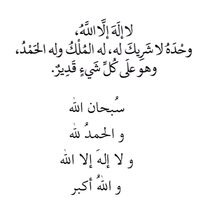 لا إلَهَ إلَّا اللَّهُ،
وحْدَهُ لا شَرِيكَ له، له المُلْكُ وله الحَمْدُ،
وهو علَى كُلِّ شَيءٍ قَدِيرٌ.
سُبحان الله
و الحمدُ لله
و لا إلهَ إلا الله
و اللهُ أكبر